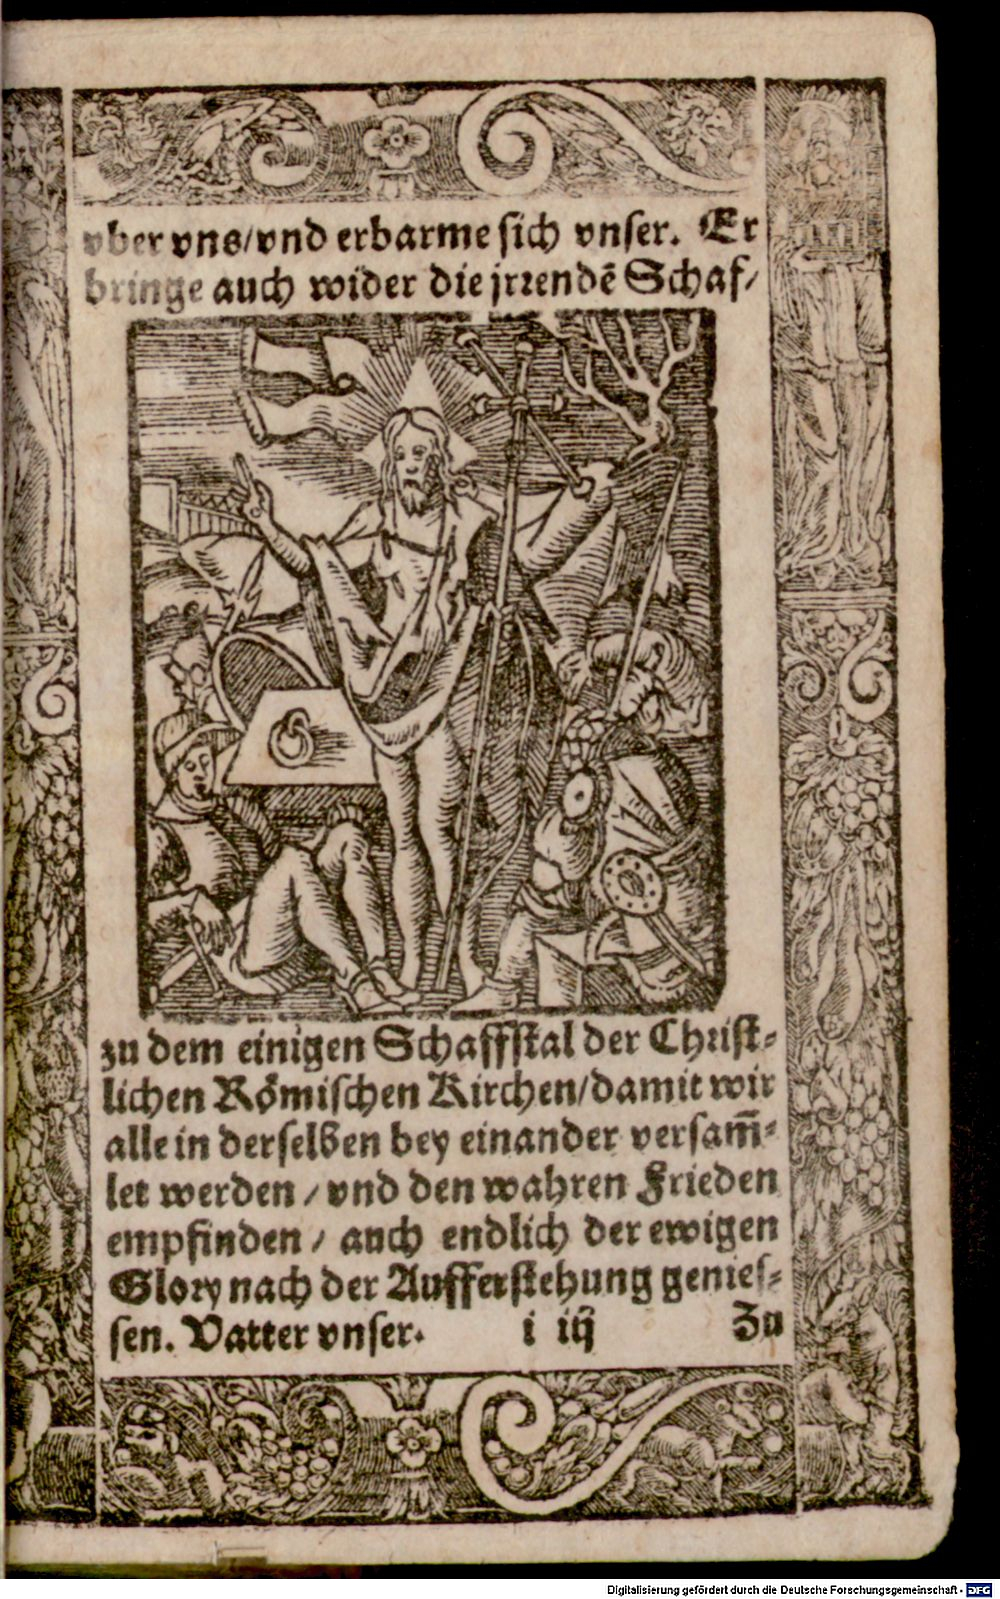 vber vns/vnd erbarme sich vnser. Er
bringe auch wider die jrrendē Schaf/
zu dem einigen Schaffstal der Christ-
lichen Römischen Kirchen/damit wir
alle in derselben bey einander versam̄-
let werden / vnd den wahren Frieden
empfinden / auch endlich der ewigen
Glory nach der Aufferstehung genies-
sen. Vatter vnser. i iij Zu
Digitalisierung gefördert durch die Deutsche Forschungsgemeinschaft - DFG